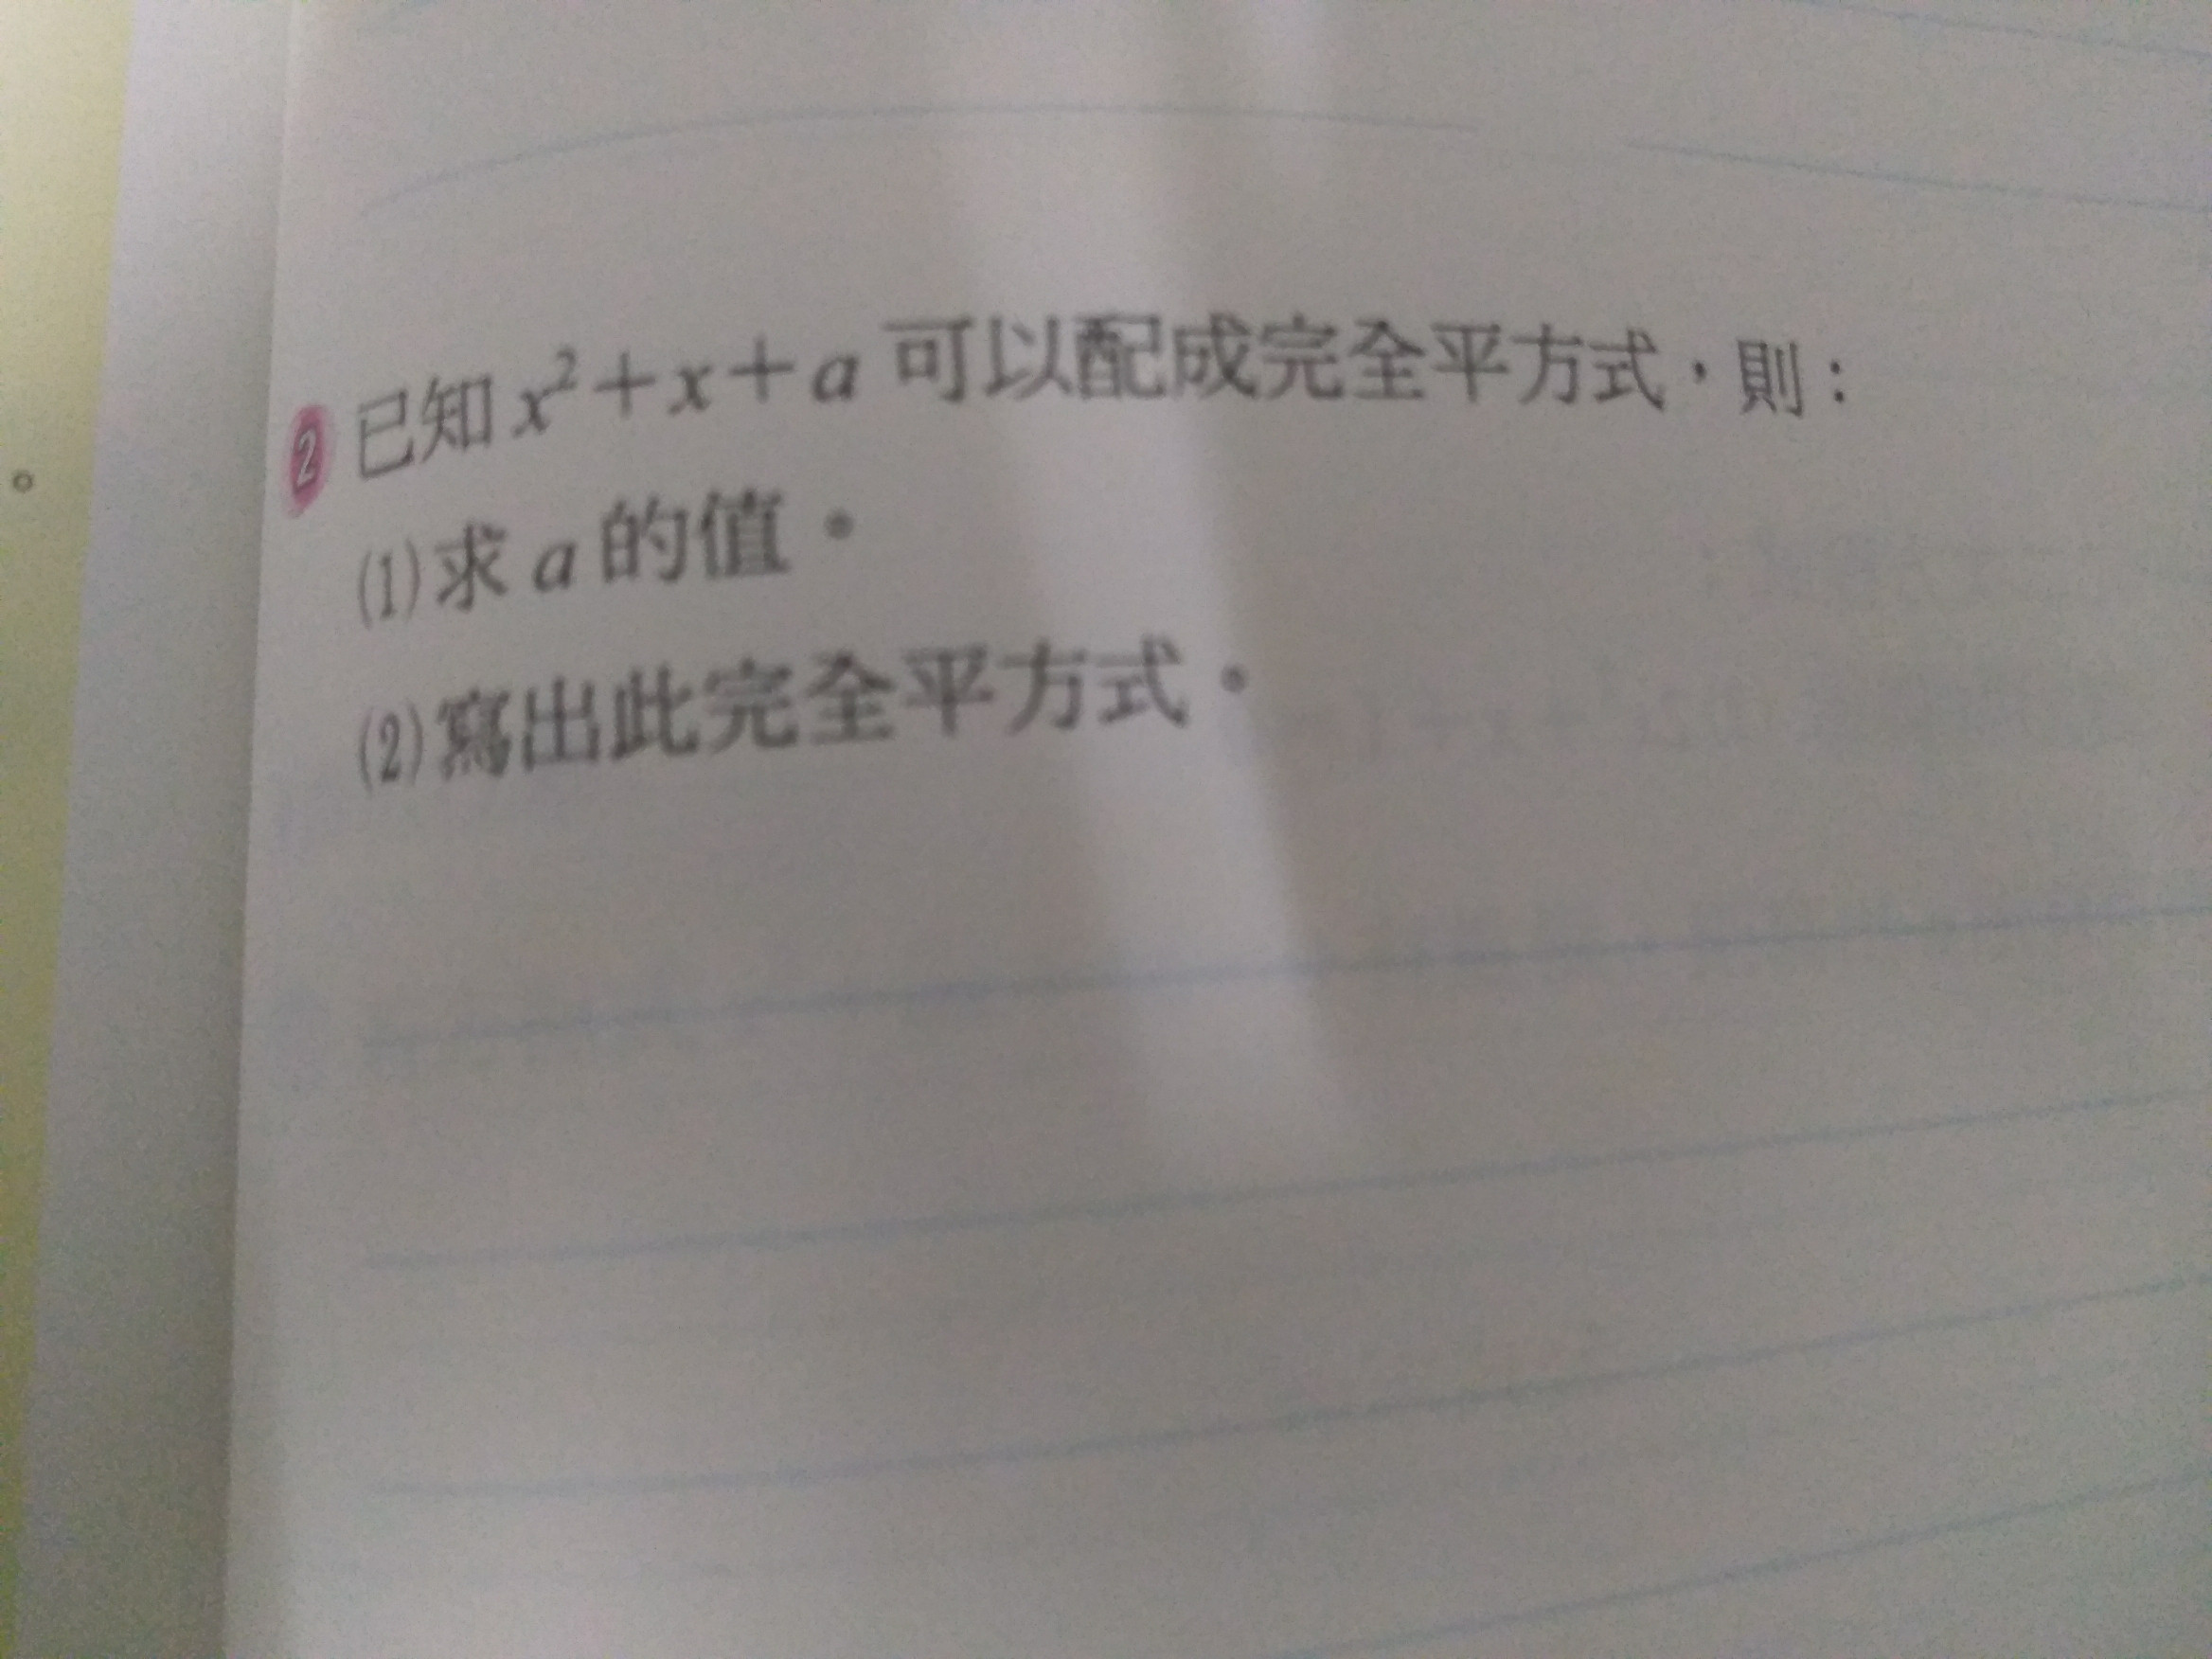 。
2 已知 x²+x+a 可以配成完全平方式，則：
(1)求 a 的值。
(2)寫出此完全平方式。